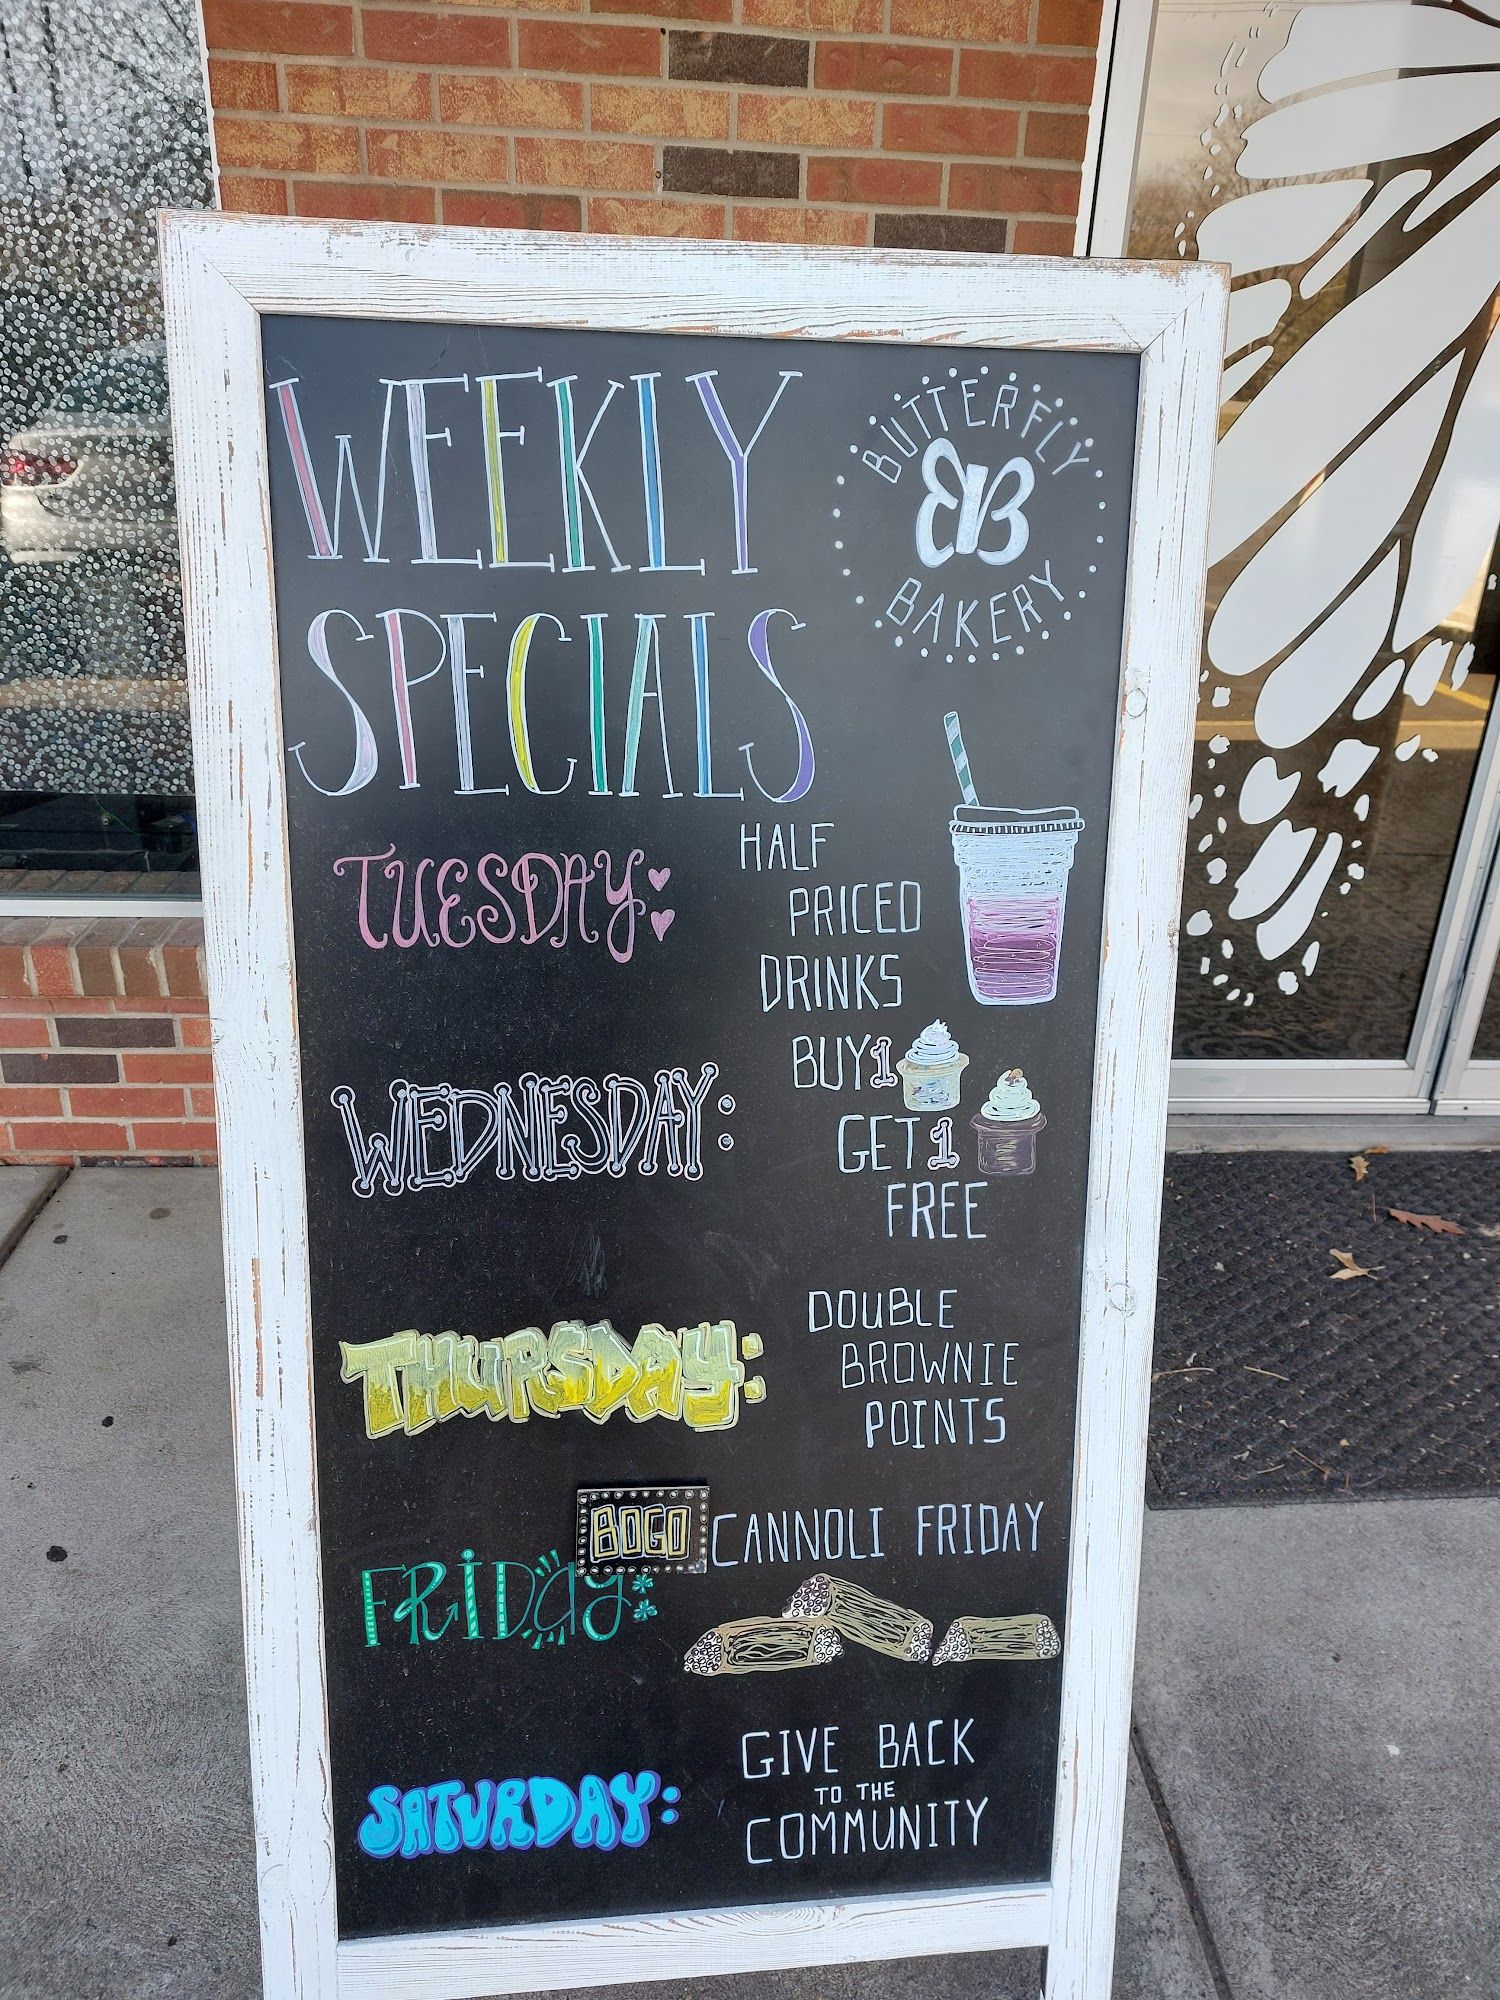 WEEKLY
SPECIALS
BUTTERFLY
BB
BAKERY
TUESDAY:
HALF
PRICED
DRINKS
WEDNESDAY:
BUY 1
GET 1
FREE
THURSDAY:
DOUBLE
BROWNIE
POINTS
FRIDAY:
BOGO CANNOLI FRIDAY
SATURDAY:
GIVE BACK
TO THE
COMMUNITY